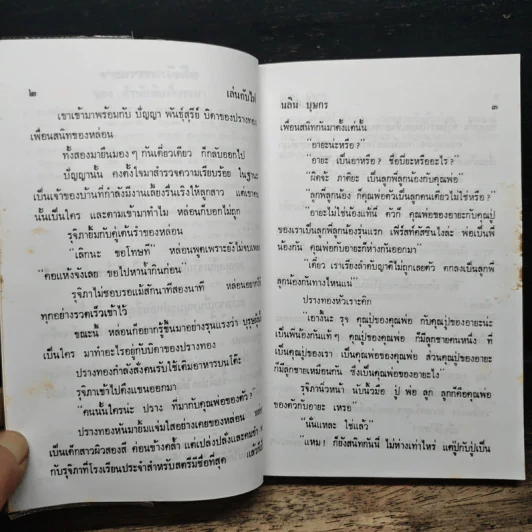 ๒
เล่นกับไฟ
เขาเข้ามาพร้อมกับ ปัญญา พันธุ์สุรีย์ บิดาของปรางทอง
เพื่อนสนิทของหล่อน
ทั้งสองมายืนมอง ๆ กันเดี๋ยวเดียว ก็กลับออกไป
ปัญญานั้น คงตั้งใจมาสำรวจความเรียบร้อย ในฐานะ
เป็นเจ้าของบ้านที่กำลังมีงานเลี้ยงรื่นเริงให้ลูกสาว แต่เขาคน
นั้นเป็นใคร และตามเข้ามาทำไม หล่อนก็บอกไม่ถูก
รุจิภายิ้มกับคู่เต้นรำของหล่อน
"เลิกนะ ขอโทษที" หล่อนพูดเพราะยังไม่จบเพลง
"คอแห้งจังเลย ขอไปหาน้ำกินก่อน"
รุจิภาไม่ชอบรอแม้สักนาทีสองนาที หล่อนอยาก
ทุกอย่างรวดเร็วเข้าไว้
ขณะนี้ หล่อนก็อยากรู้ขึ้นมาอย่างรุนแรงว่า บุรุษ
เป็นใคร มาทำอะไรอยู่กับบิดาของปรางทอง
ปรางทองกำลังสั่งคนรับใช้เติมอาหารบนโต๊ะ
รุจิภาเข้าไปดึงแขนออกมา
"คนนั้นใครน่ะ ปราง ที่มากับคุณพ่อของตัว ?"
ปรางทองหันมายิ้มแจ่มใสอย่างเคยของหล่อน
เป็นเด็กสาวผิวสองสี ค่อนข้างคล้ำ แต่เปล่งปลั่งและคม
กับรุจิภาที่โรงเรียนประจำสำหรับสตรีมีชื่อที่สุด แล้วก็
นลิน บุษกร
๓
เพื่อนสนิทกันมาตั้งแต่นั้น
"อายะน่ะหรือ ?"
"อายะ เป็นอาหรือ ? ชื่อยี่ยะหรืออะไร ?"
"ผิดจ้ะ ภาคิยะ เป็นลูกพี่ลูกน้องกับคุณพ่อ"
"ลูกพี่ลูกน้อง ก็คุณพ่อตัวเป็นลูกคนเดียวไม่ใช่หรือ ?"
"อายะไม่ใช่น้องแท้นี่ ตัวก็ คุณพ่อของอายะกับคุณปู่
ของเราเป็นลูกพี่ลูกน้องรุ่นแรก เฟิร์สท์คัสซินไงล่ะ พ่อเป็นพี่
น้องกัน คุณพ่อกับอายะก็ห่างกันออกมา"
"เดี๋ยว เราเรียงลำดับญาติไม่ถูกเลยตัว ตกลงเป็นลูกพี่
ลูกน้องกันทางไหนแน่"
ปรางทองหัวเราะคิก
"เอางี้นะ รุจ คุณปู่ของคุณพ่อ กับคุณปู่ของอายะน่ะ
เป็นพี่น้องกันแท้ ๆ คุณปู่ของคุณพ่อ ก็มีลูกชายคนหนึ่ง ที่
เป็นคุณปู่ของเรา เป็นคุณพ่อของคุณพ่อ ส่วนคุณปู่ของอายะ
ก็มีลูกชายเหมือนกัน ซึ่งเป็นคุณพ่อของอายะไง"
รุจิภานิ่วหน้า นับนิ้วมือ ปู่ พ่อ ลูก ลูกก็คือคุณพ่อ
ของตัวกับอายะ เหรอ
"นั่นแหละ ใช่แล้ว"
"แหม ! ก็ยังสนิทกันนี่ ไม่ห่างเท่าไหร่ แต่ปู่กับปู่เป็น